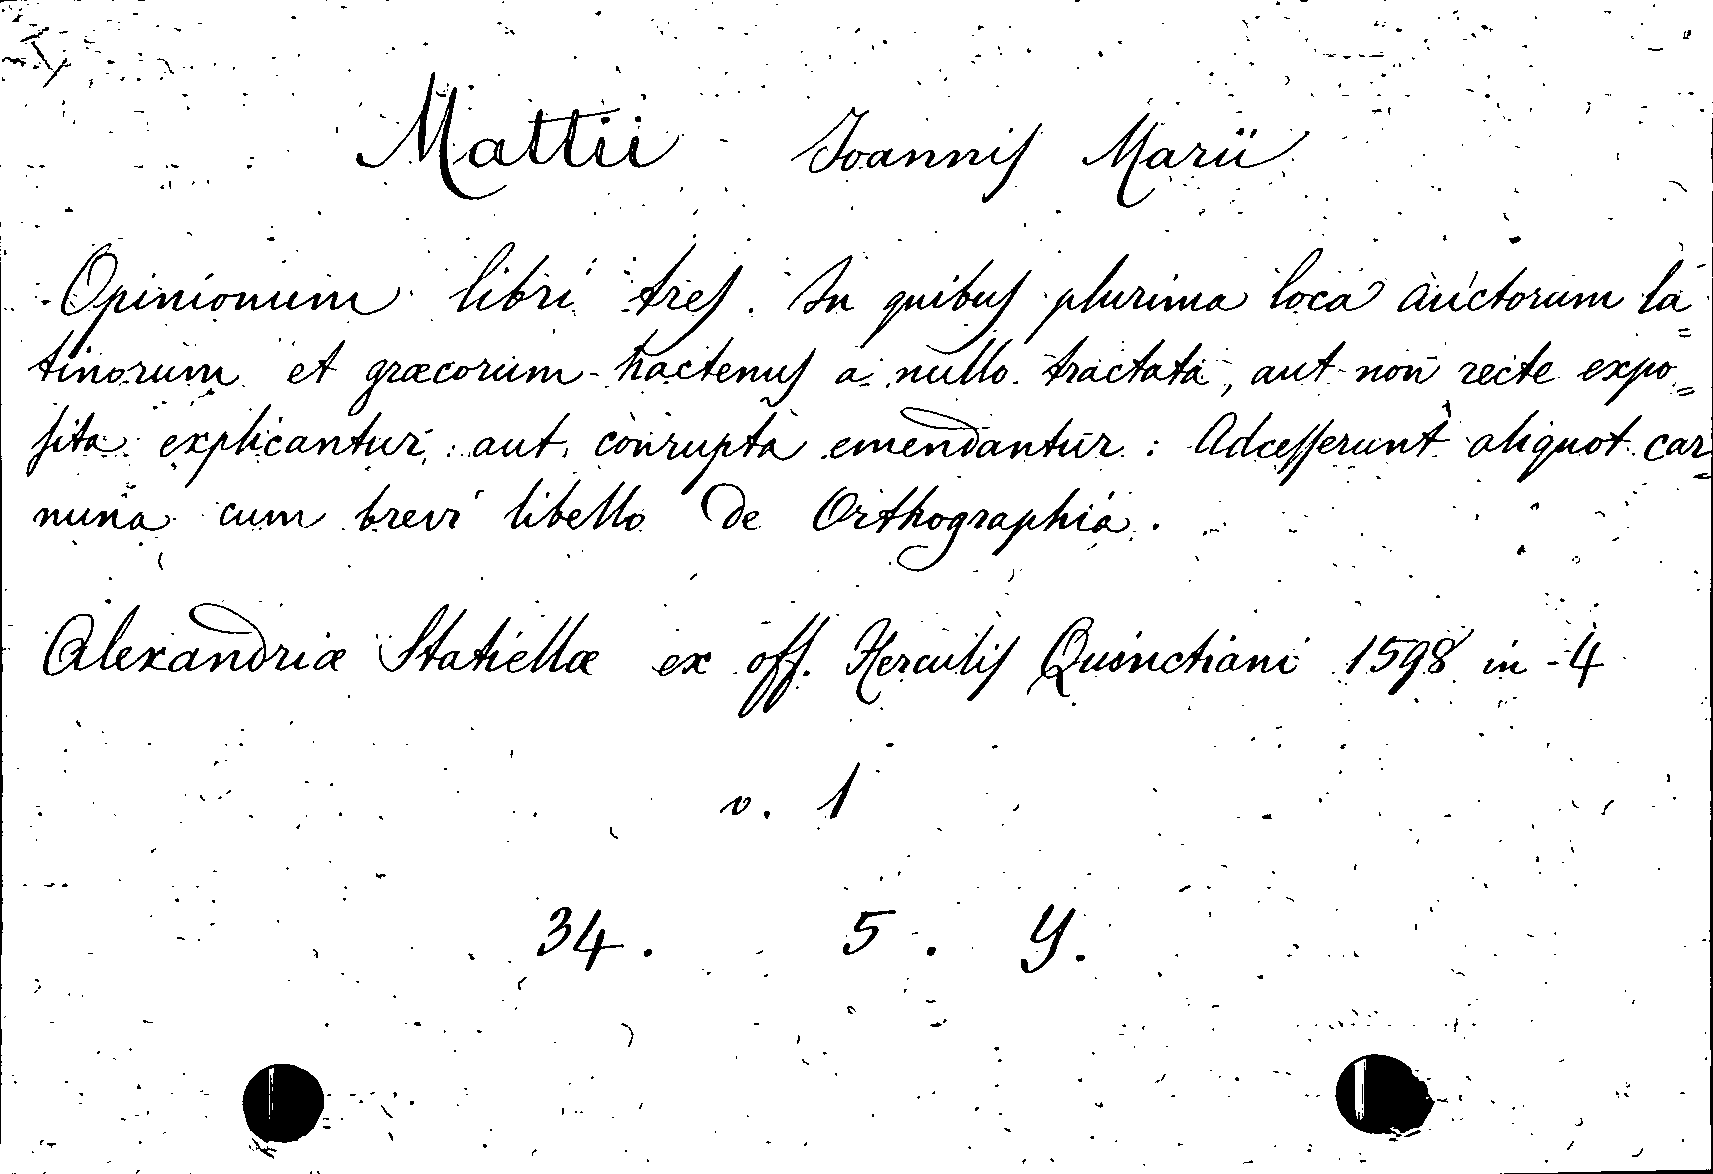 Mattii Joannis Marii
Opinionum libri tres. In quibus plurima loca auctorum la=
tinorum et græcorum hactenus a nullo tractata, aut non recte expo=
sita explicantur, aut corrupta emendantur: Adcesserunt aliquot car=
mina cum brevi libello de Orthographia.
Alexandriæ Statiellæ ex off. Herculis Quinctiani 1598 in-4
v. 1
34. 5. Y.